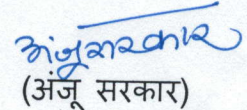 अंजू सरकार
(अंजू सरकार)